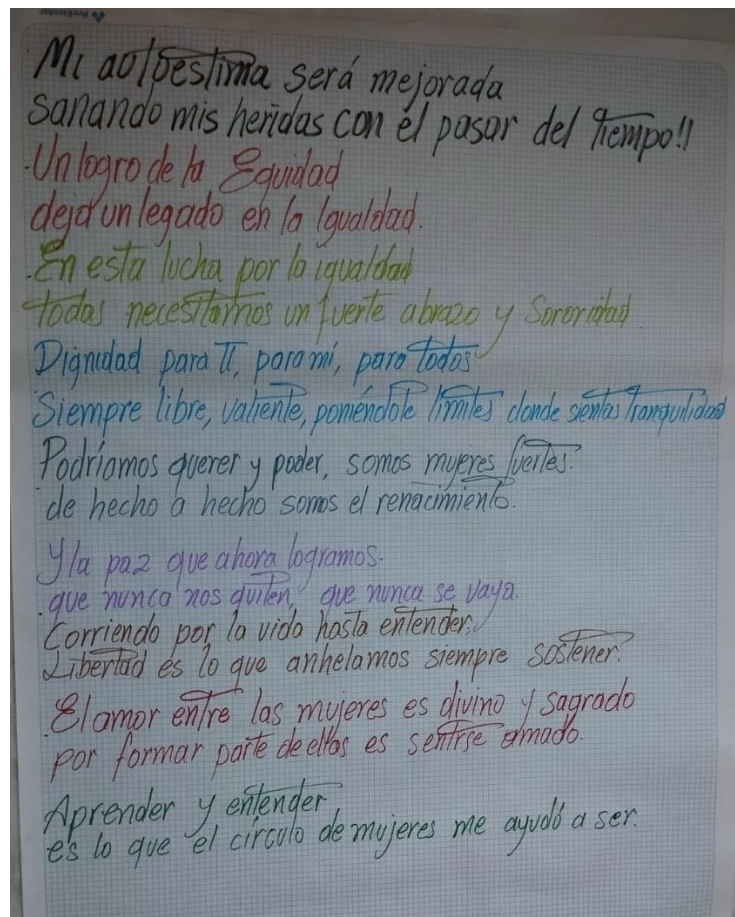 Mi autoestima será mejorada
sanando mis heridas con el pasar del tiempo!!
.Un logro de la Equidad
deja un legado en la Igualdad.
.En esta lucha por la igualdad
todas necesitamos un fuerte abrazo y Sororidad
Dignidad para Ti, para mi, para todos
Siempre libre, valiente, poniéndole límites donde sientas Tranquilidad
Podríamos querer y poder, somos mujeres fuertes.
de hecho a hecho somos el renacimiento.
Y la paz que ahora logramos.
.que nunca nos quiten, que nunca se vaya.
Corriendo por la vida hasta entender.
Libertad es lo que anhelamos siempre sostener.
.El amor entre las mujeres es divino y sagrado
por formar parte de ellas es sentirse amado.
Aprender y entender
es lo que el círculo de mujeres me ayudó a ser.